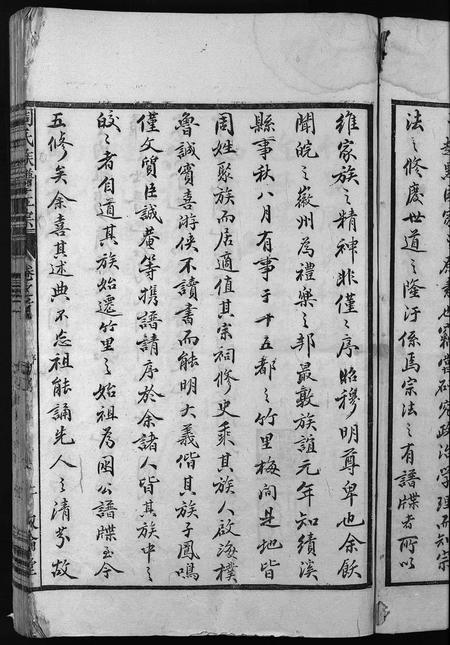 法之修慶世道之隆汙係焉宗法之有譜牒者所以
維家族之精神非僅僅序昭穆明尊卑也余飫
聞皖之徽州為禮樂之邦最敦族誼元年知績溪
縣事秋八月有事于十五都之竹里梅間是地皆
周姓聚族而居適值其宗祠修史乘其族人啟海樸
魯誠實喜游俠不讀書而能明大義偕其族子鳳鳴
僅文質臣誠菴等攜譜請序於余諸人皆其族中之
皎之者自道其族始遷竹里之始祖為園公譜牒至今
五修矣余喜其述典不忘祖能誦先人之清芬故
周氏族譜正宗